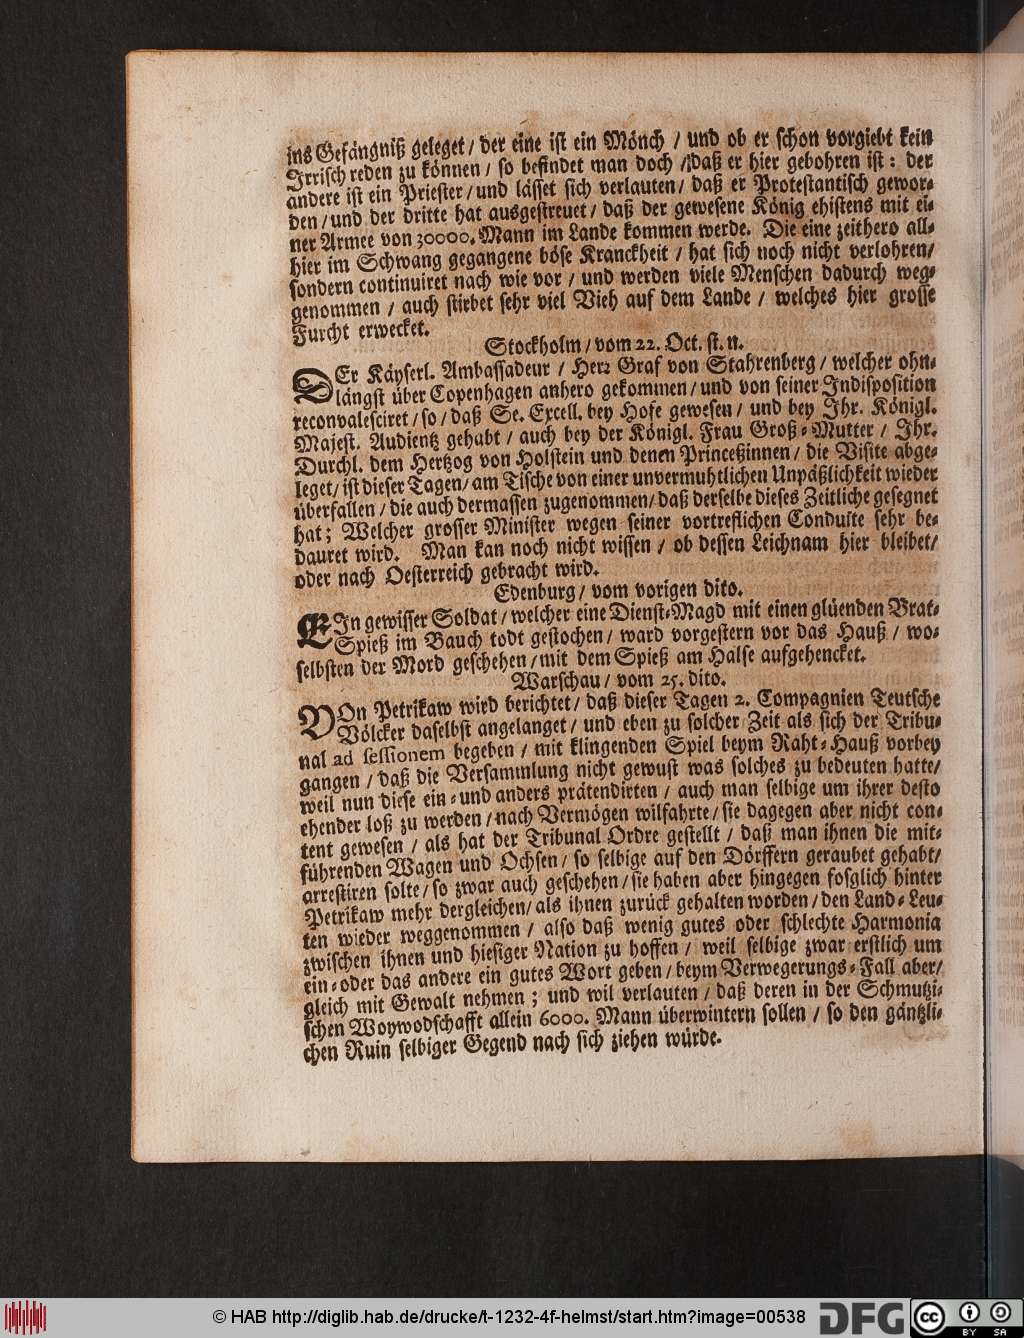 ins Gefängniß geleget / der eine ist ein Mönch / und ob er schon vorgiebt kein
Irrisch reden zu können / so befindet man doch / daß er hier gebohren ist : der
andere ist ein Priester / und lässet sich verlauten / daß er Protestantisch gewor-
den / und der dritte hat ausgestreuet / daß der gewesene König ehistens mit ei-
ner Armee von 30000. Mann im Lande kommen werde. Die eine zeithero all-
hier im Schwang gegangene böse Kranckheit / hat sich noch nicht verlohren/
sondern continuiret nach wie vor / und werden viele Menschen dadurch weg-
genommen / auch stirbet sehr viel Vieh auf dem Lande / welches hier grosse
Furcht erwecket.
Stockholm / vom 22. Oct. st. n.
DEr Käyserl. Ambassadeur / Herr Graf von Stahrenberg / welcher ohn-
längst über Copenhagen anhero gekommen / und von seiner Indisposition
reconvalesciret / so / daß Se. Excell. bey Hofe gewesen / und bey Ihr. Königl.
Majest. Audientz gehabt / auch bey der Königl. Frau Groß-Mutter / Ihr.
Durchl. dem Hertzog von Holstein und denen Princetzinnen / die Visite abge-
leget / ist dieser Tagen / am Tische von einer unvermuhtlichen Unpäßlichkeit wieder
überfallen / die auch dermassen zugenommen / daß derselbe dieses Zeitliche gesegnet
hat ; Welcher grosser Minister wegen seiner vortreflichen Conduite sehr be-
dauret wird. Man kan noch nicht wissen / ob dessen Leichnam hier bleibet/
oder nach Oesterreich gebracht wird.
Edenburg / vom vorigen dito.
EIn gewisser Soldat / welcher eine Dienst-Magd mit einen glüenden Brat-
Spieß im Bauch todt gestochen / ward vorgestern vor das Hauß / wo-
selbsten der Mord geschehen / mit dem Spieß am Halse aufgehencket.
Warschau / vom 25. dito.
VOn Petrikaw wird berichtet / daß dieser Tagen 2. Compagnien Teutsche
Völcker daselbst angelanget / und eben zu solcher Zeit als sich der Tribu-
nal ad sessionem begeben / mit klingenden Spiel beym Raht-Hauß vorbey
gangen / daß die Versammlung nicht gewust was solches zu bedeuten hatte/
weil nun diese ein- und anders prätendirten / auch man selbige um ihrer desto
ehender loß zu werden / nach Vermögen wilfahrte / sie dagegen aber nicht con-
tent gewesen / als hat der Tribunal Ordre gestellt / daß man ihnen die mit-
führenden Wagen und Ochsen / so selbige auf den Dörffern geraubet gehabt/
arrestiren solte / so zwar auch geschehen / sie haben aber hingegen fosglich hinter
Petrikaw mehr dergleichen / als ihnen zurück gehalten worden / den Land-Leu-
ten wieder weggenommen / also daß wenig gutes oder schlechte Harmonia
zwischen ihnen und hiesiger Nation zu hoffen / weil selbige zwar erstlich um
ein- oder das andere ein gutes Wort geben / beym Verwegerungs-Fall aber/
gleich mit Gewalt nehmen ; und wil verlauten / daß deren in der Schmutzi-
schen Woywodschafft allein 6000. Mann überwintern sollen / so den gäntzli-
chen Ruin selbiger Gegend nach sich ziehen würde.
© HAB http://diglib.hab.de/drucke/t-1232-4f-helmst/start.htm?image=00538
DFG
cc
BY SA